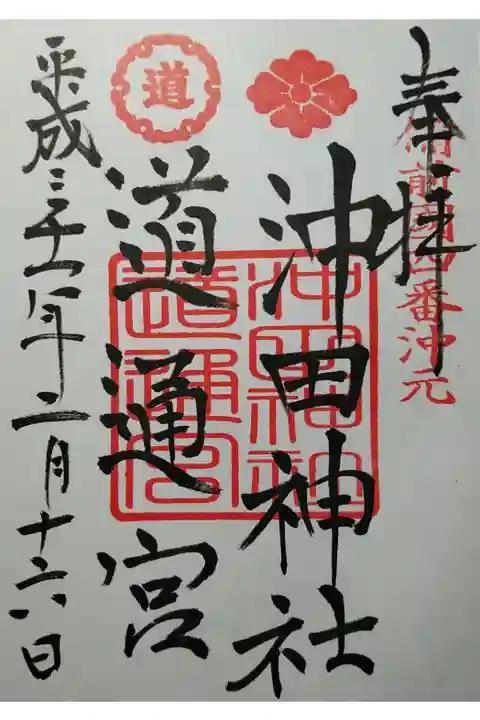 奉拝
備前國四番沖元
沖田神社
道通宮
道
沖田神社
道通宮
平成三十一年二月十六日